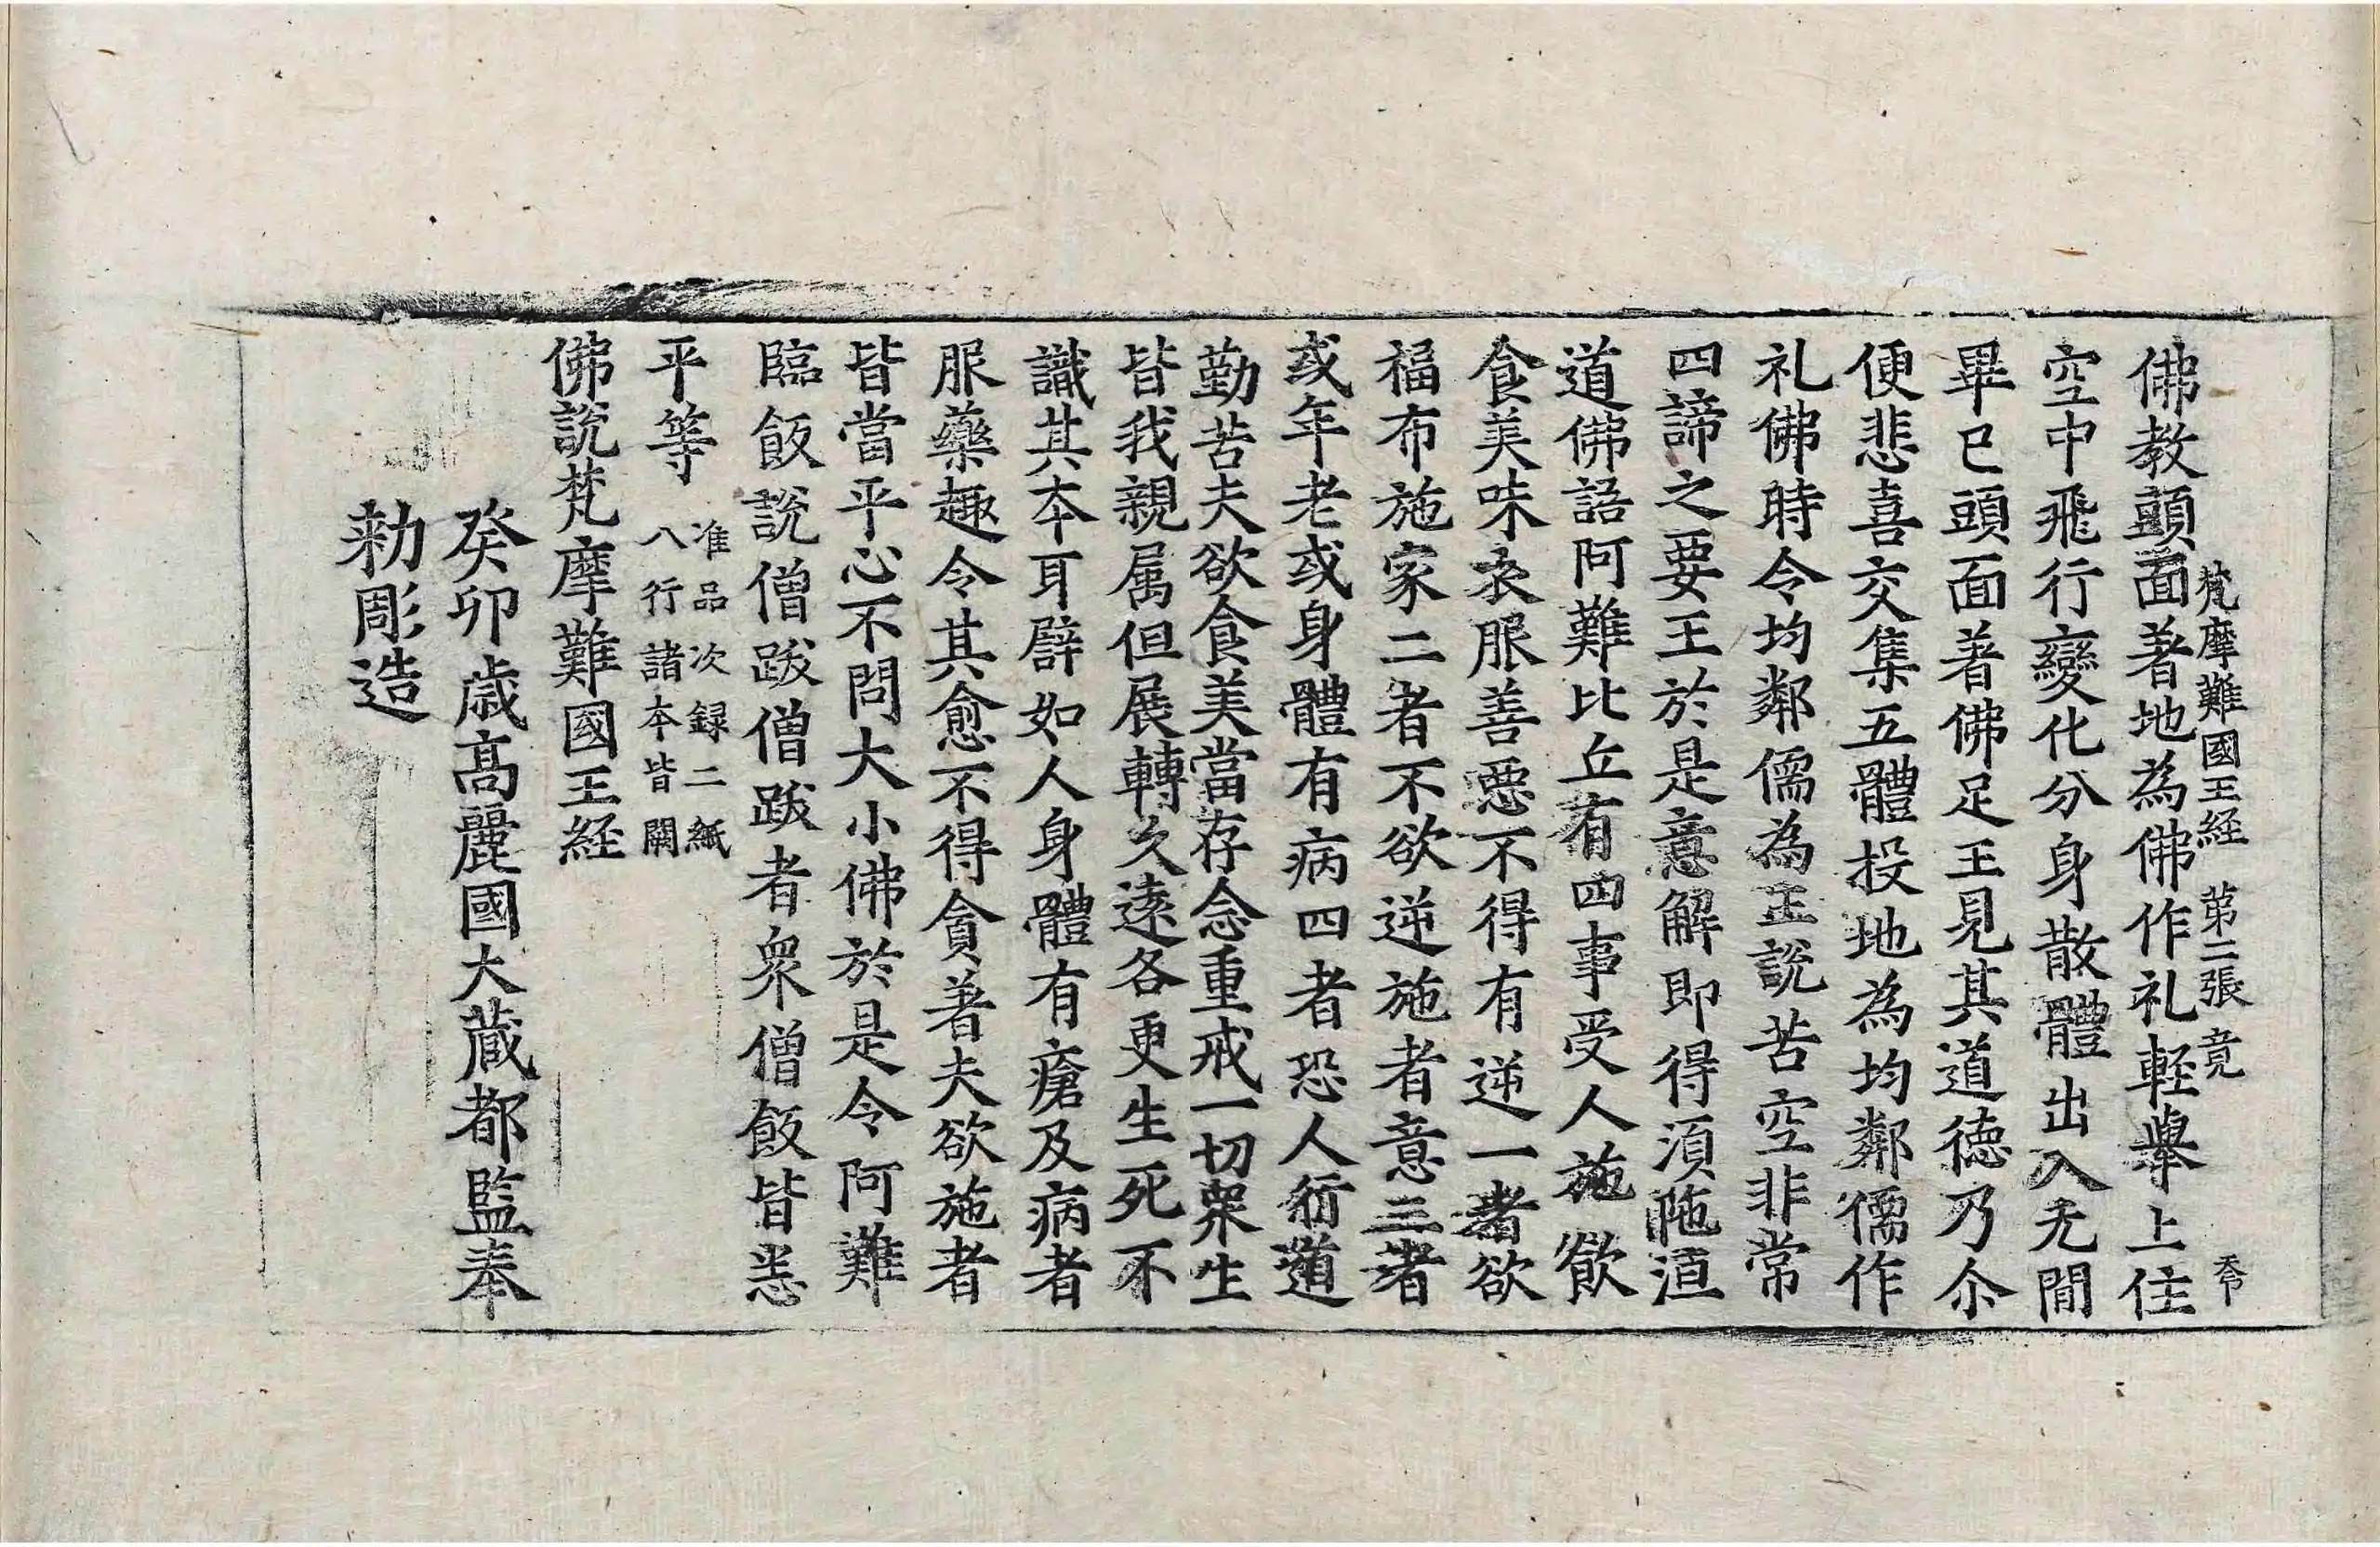 梵摩難國王経 第二張 竟
佛教頭面著地為佛作礼軽舉上住
空中飛行變化分身散體出入无閒
畢已頭面著佛足王見其道徳乃尒
便悲喜交集五體投地為均鄰儒作
礼佛時令均鄰儒為王說苦空非常
四諦之要王於是意解即得湏陁洹
道佛語阿難比丘有四事受人施飲
食美味衣服善惡不得有逆一者欲
福布施家二者不欲逆施者意三者
或年老或身體有病四者恐人衜道
勤苦夫欲食美當存念重戒一切衆生
皆我親属但展轉久遠各更生死不
識其本耳譬如人身體有瘡及病者
服藥趣令其愈不得貪著夫欲施者
皆當平心不問大小佛於是令阿難
臨飯說僧跋僧跋者衆僧飯皆悉
平等 准品次録二紙
八行諸本皆闕
佛說梵摩難國王経
癸卯歳高麗國大蔵都監奉
勅彫造